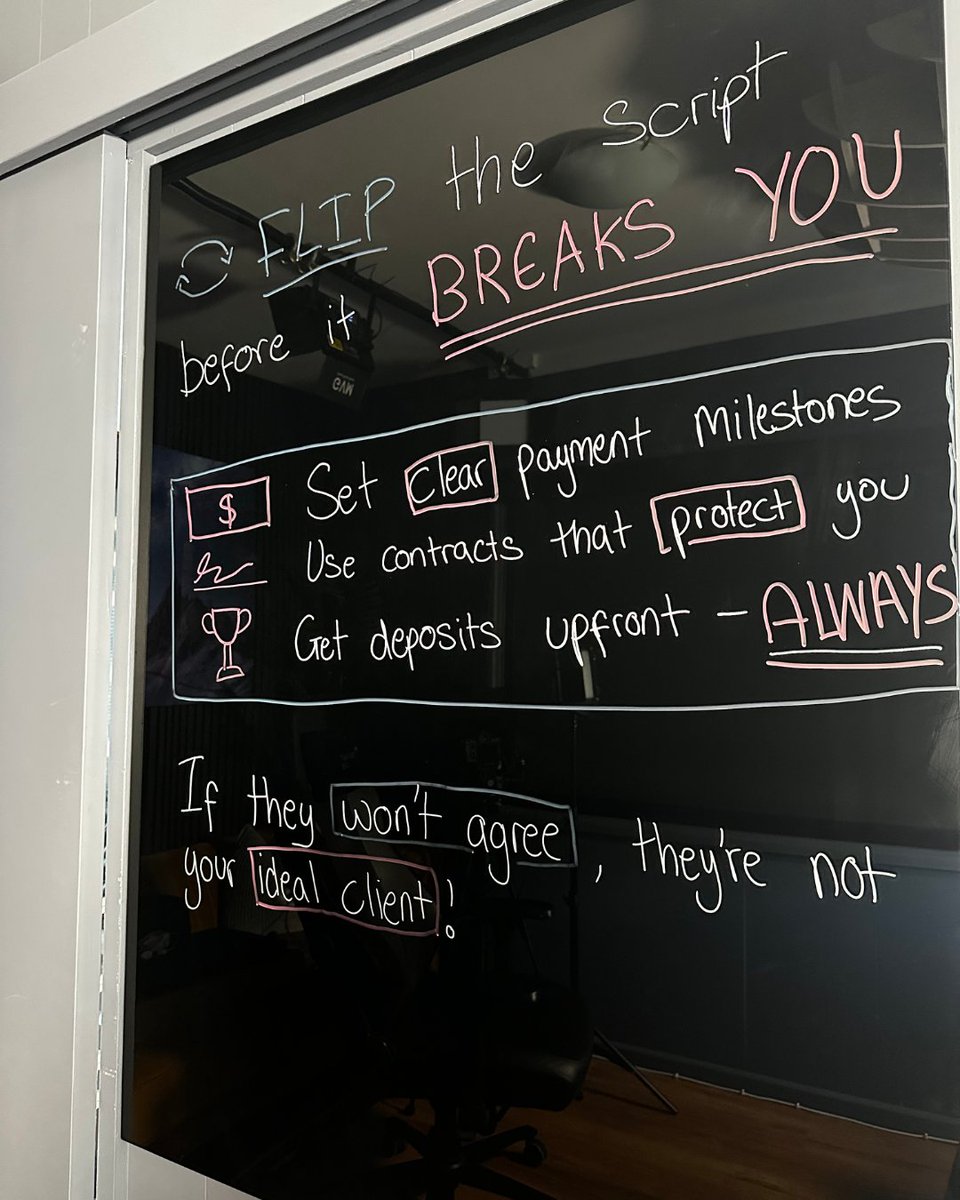 FLIP the Script
before it BREAKS YOU
$ Set clear payment Milestones
Use contracts that protect you
Get deposits upfront - ALWAYS
If they won't agree, they're not
your ideal client!
GVM